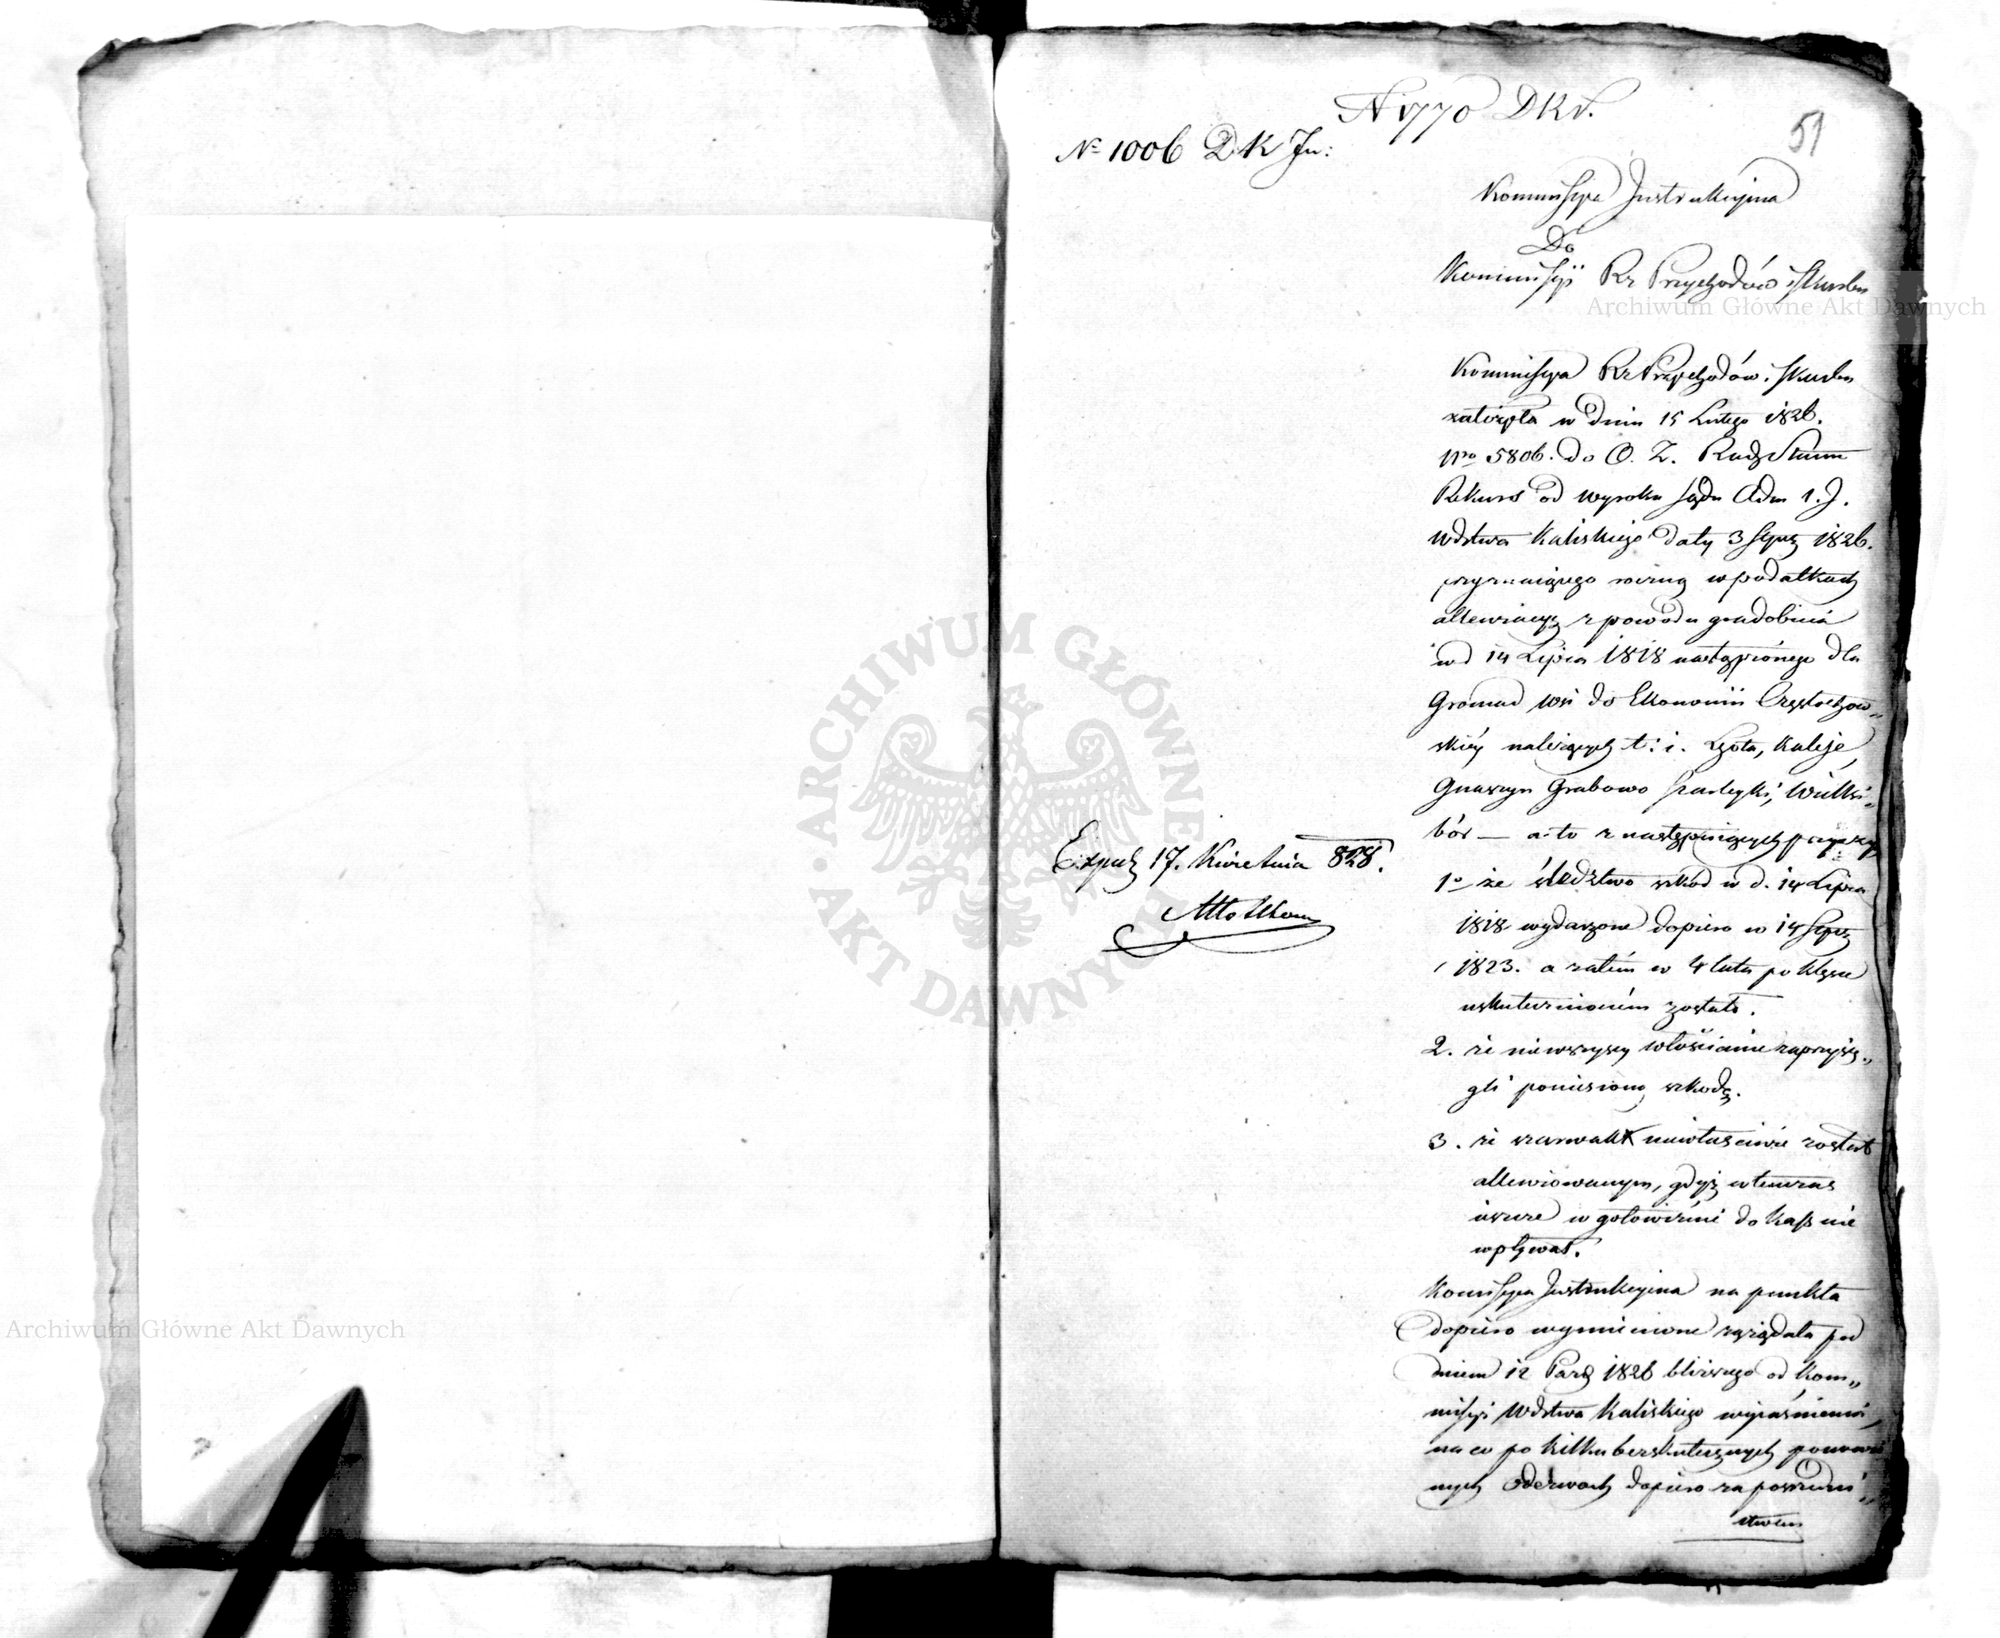 N 1770 DKJ.
51
№ 1006 DK Jn:
Kommissya Instrukcyjna
Do
Kommissyi Rz Przychodów i Skarbu
Kommissya Rz Przychodów i Skarbu
założyła w dniu 15 Lutego 1826.
nro 5806. do O. Z. Rady Stanu
Rekurs od wyroku Sądu Adm 1. J.
Wdztwa Kaliskiego daty 3 Stycz 1826.
przyznaiącego ulgę w podatkach
allewiacyą z powodu gradobicia
w d 14 Lipca 1818 nastąpionego dla
Gromad wsi do Ekonomii Częstochow„
skiéy należących t: i. Lgota, Kaleje,
Gnaszyn Grabowo Szarleyki, Wielki„
bór — a to z następuiących przyczyn
1o że śledztwo szkód w d. 14 Lipca
1818 wydarzone dopiero w 14 Stycz
1823. a zatém w 4 lata po klęsce
uskutecznioném zostało.
2. że nie wszyscy włościanie zaprzysię„
gli poniesioną szkodę.
3. że szarwark niewłaściwie został
allewiowanym, gdyż wtenczas
ieszcze w gotowiźnie do kass nie
wpływał.
Kommissya Instrukcyjna na punkta
dopiero wymienione zażądała pod
dniem 12 Paźdz 1826 bliższego od Kom„
missyi Wdztwa Kaliskiego wyiaśnienia,
na co po kilku bezskutecznych ponowio
nych odezwach dopiero za pośrednic„
twem
Expedy 17. Kwietnia 828.
Archiwum Główne Akt Dawnych
ARCHIWUM GŁÓWNE AKT DAWNYCH
Archiwum Główne Akt Dawnych